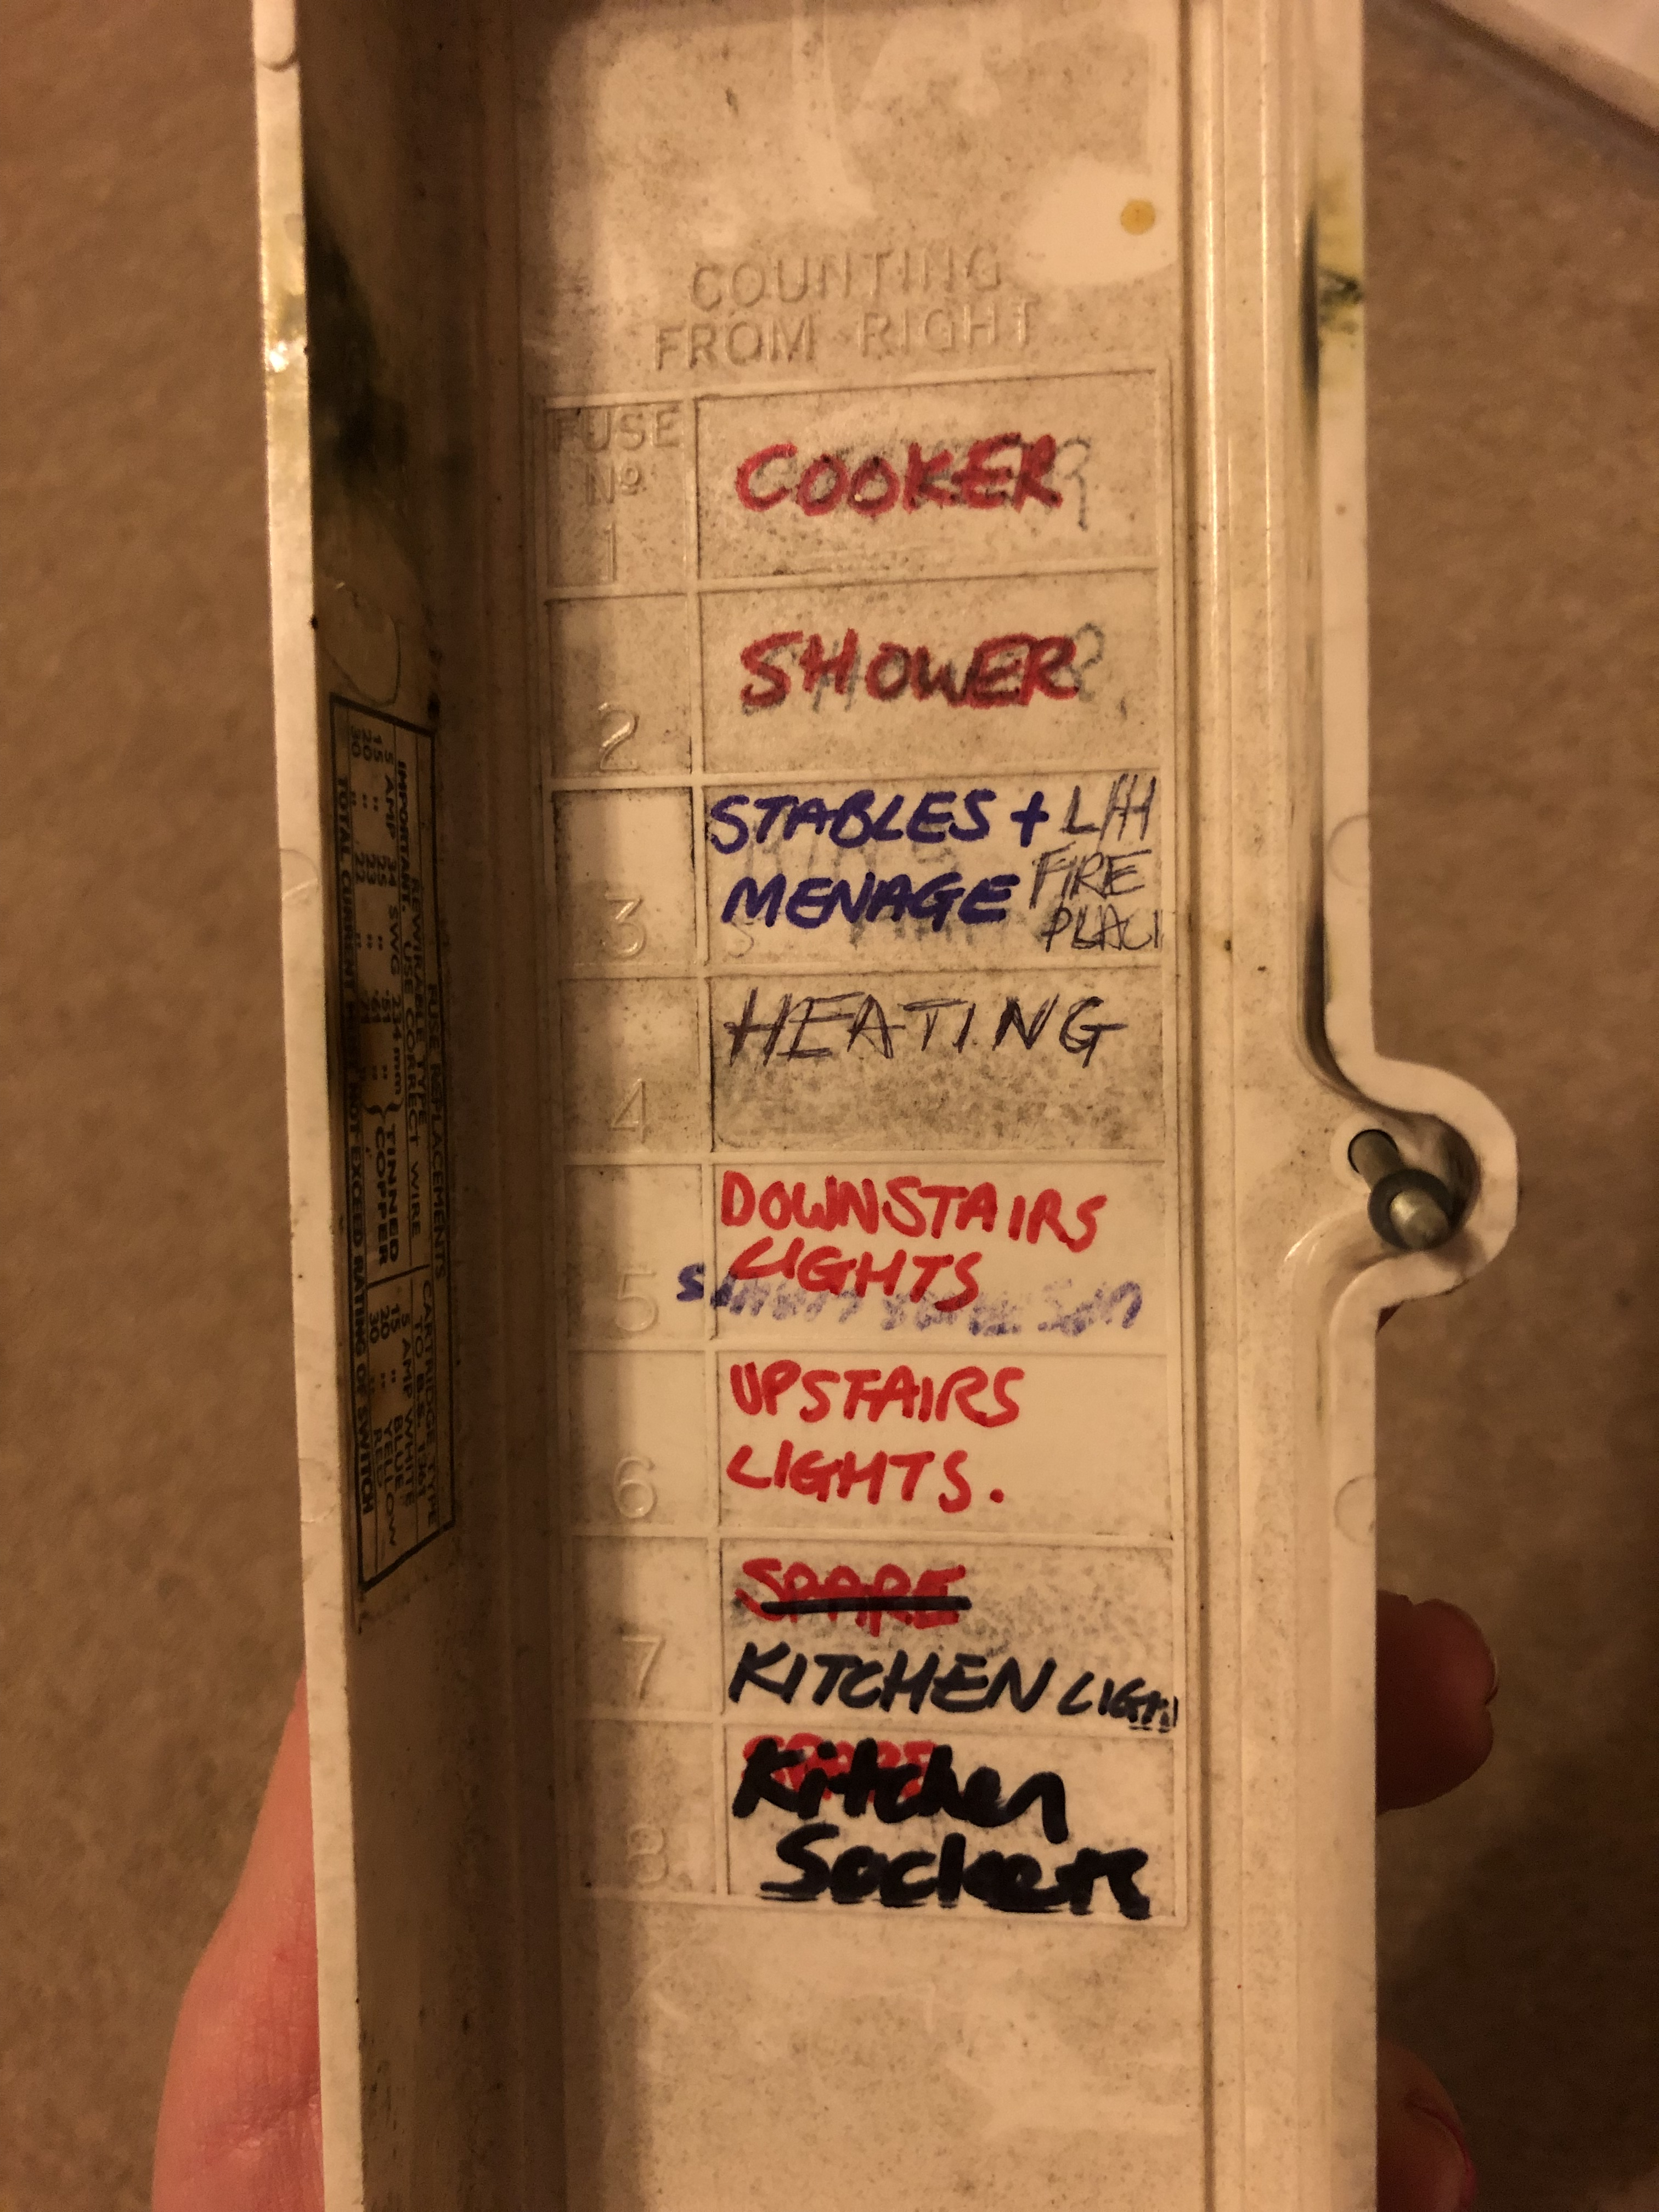 COUNTING
FROM RIGHT
FUSE
Nº
1
COOKER
2
SHOWER
3
STABLES + L/H
MENAGE FIRE
PLAC
4
HEATING
5
DOWNSTAIRS
LIGHTS
6
UPSTAIRS
LIGHTS.
7
SPARE
KITCHEN LIGH
8
SPARE
Kitchen
Sockets
FUSE REPLACEMENTS
REWIRABLE TYPE
IMPORTANT. USE CORRECT WIRE
5 AMP 34 SWG 234mm
15 " 25 " 51 "
20 " 23 " 61 "
30 " 22 "
TINNED
COPPER
CARTRIDGE TYPE
TO B.S. 1361
5 AMP WHITE
15 " BLUE
20 " YELLOW
30 " RED
TOTAL CURRENT NOT EXCEED RATING OF SWITCH